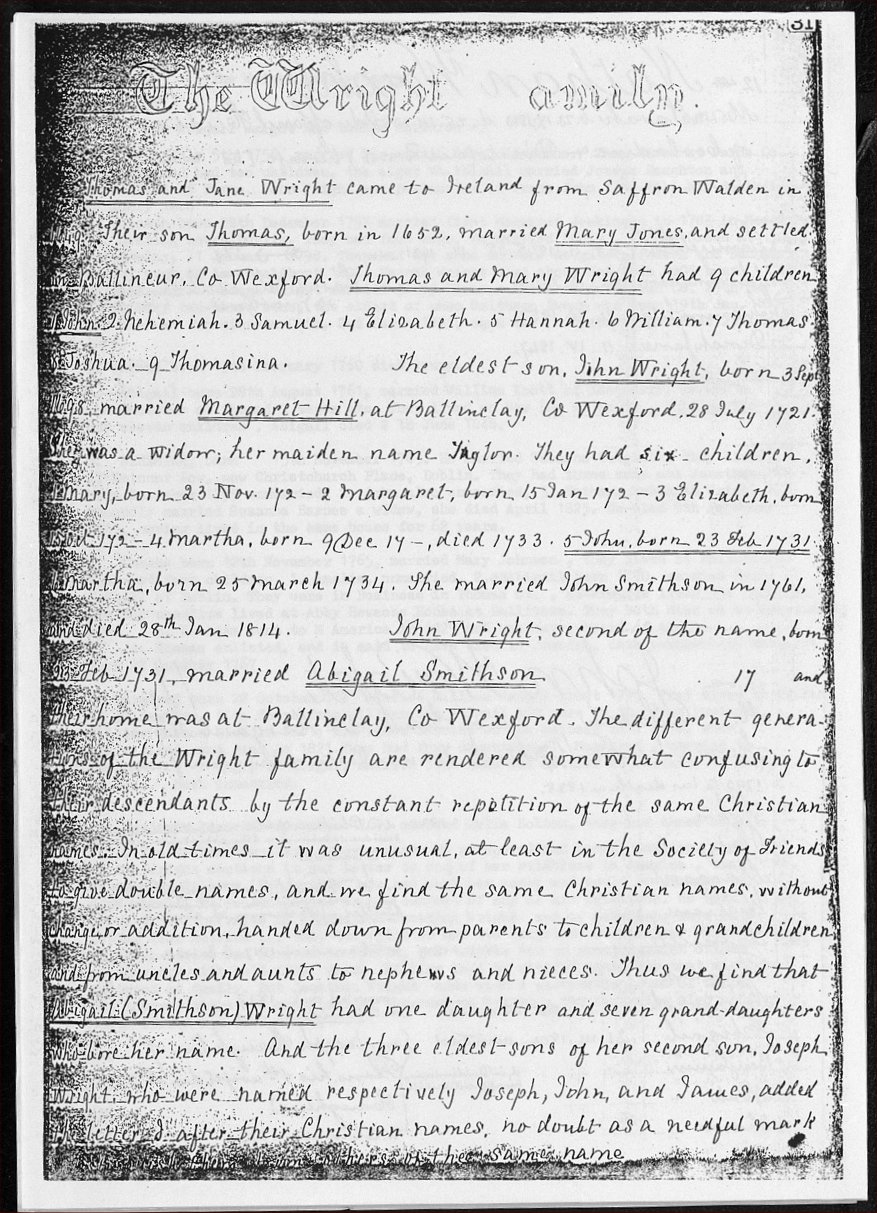 31
The Wright amily.
Thomas and Jane Wright came to Ireland from Saffron Walden in
Their son Thomas, born in 1652, married Mary Jones, and settled
in Ballineur, Co Wexford. Thomas and Mary Wright had 9 children
1 John 2 Nehemiah. 3 Samuel. 4 Elizabeth. 5 Hannah. 6 William. 7 Thomas.
8 Joshua. 9 Thomasina. The eldest son, John Wright, born 3 Sept
married Margaret Hill, at Ballinclay, Co Wexford. 28 July 1721.
She was a widow; her maiden name Taylor. They had six children,
1 Mary, born 23 Nov. 172 – 2 Margaret, born 15 Jan 172 – 3 Elizabeth, born
172 – 4 Martha, born 9 Dec 17 –, died 1733. 5 John, born 23 Feb 1731.
Martha, born 25 March 1734. She married John Smithson in 1761,
and died 28th Jan 1814. John Wright, second of the name, born
23 Feb 1731, married Abigail Smithson 17 and
their home was at Ballinclay, Co Wexford. The different genera-
tions of the Wright family are rendered somewhat confusing to
their descendants by the constant repitition of the same Christian
names. In old times it was unusual, at least in the Society of Friends
to give double names, and we find the same Christian names, without
change or addition, handed down from parents to children & grandchildren
and from uncles and aunts to nephews and nieces. Thus we find that
Abigail (Smithson) Wright had one daughter and seven grand-daughters
who bore her name. And the three eldest sons of her second son, Joseph
Wright, who were named respectively Joseph, John, and James, added
the letter J after their Christian names, no doubt as a needful mark
others of the same name